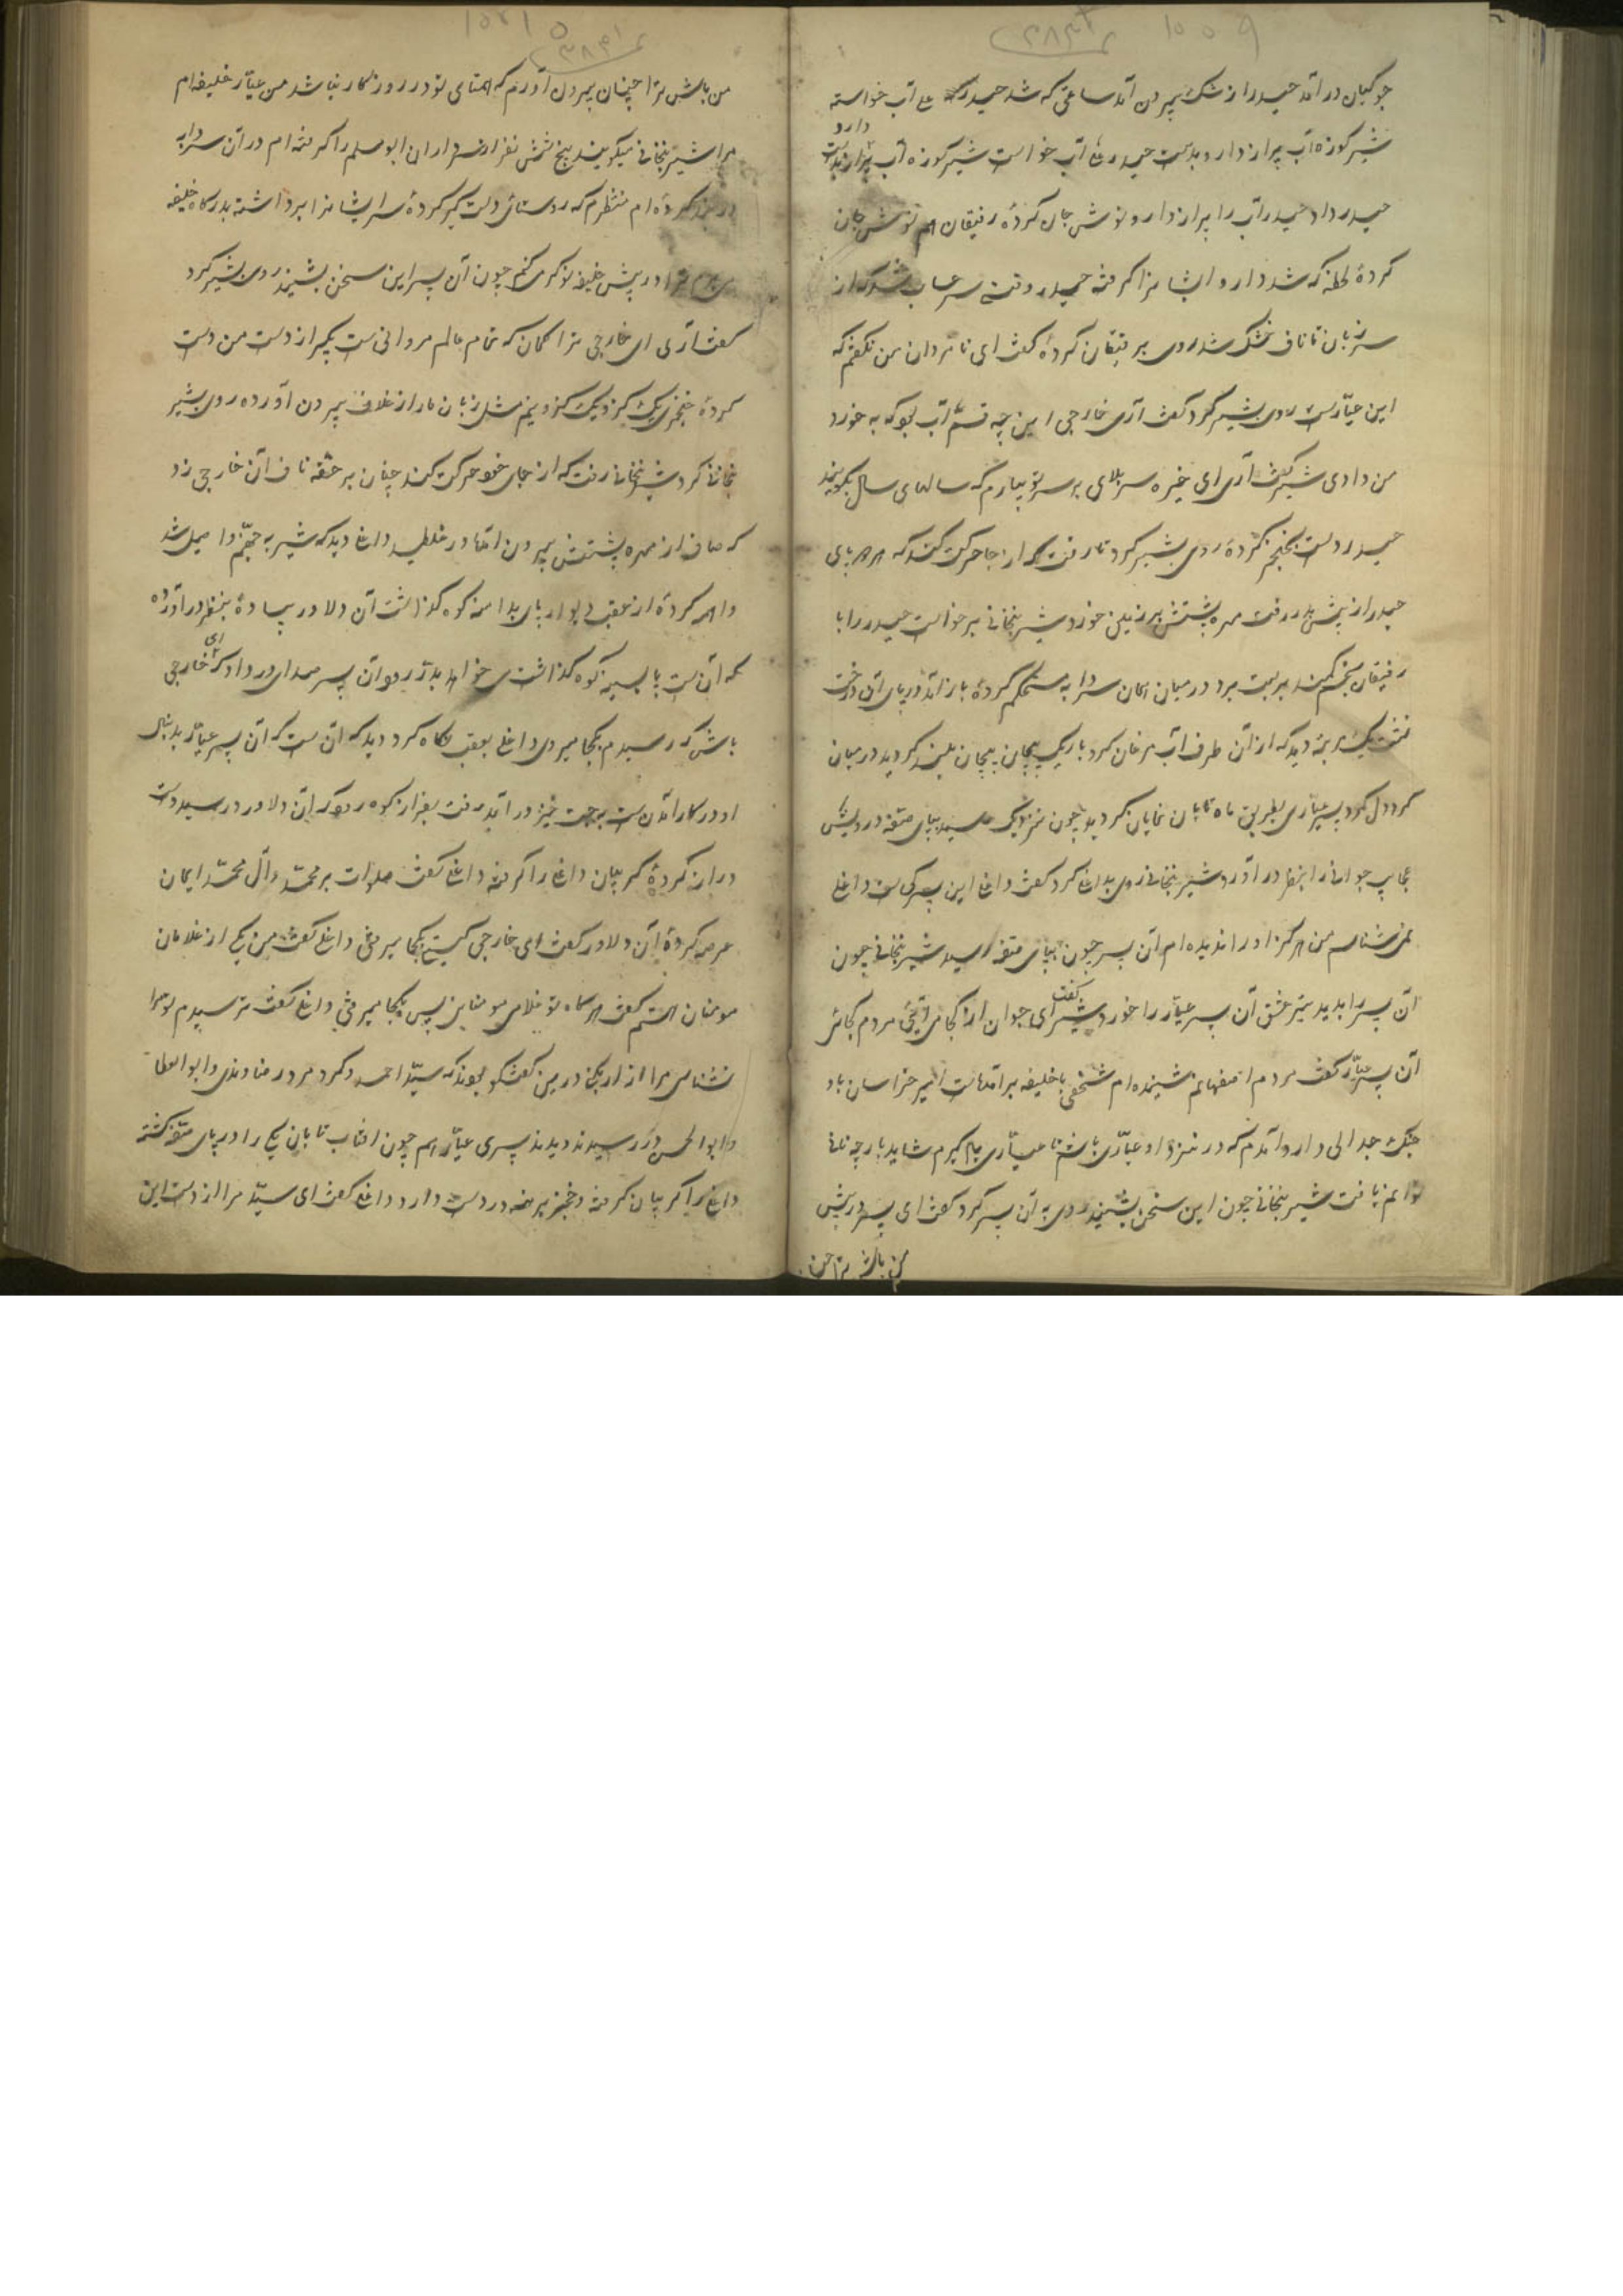 ۱۰۰۹
۲۸۴۲
جوکیان در آمد حیدر از شک بیرون آمد ساعتی که شد حیدر آب خواسته
شیر کوزه آب پر از دارو بدست حیدر آب خواست شیر کوزه آب پر از
دارو
حیدر داد حیدر آب را پر از دارو نوش جان کرده رفیقان هم نوش جان
کرده لحظه که شد دارو ایشانرا کرفته حیدر وقتی سر حساب شد که از
سر زبان تا ناف خشک شد روی برفیقان کرده کفت ای نامردان من نکفتم که
این عیارست روی بشیر کرد کفت آری خارجی این چه قسم آب بود که به خورد
من دادی شیر کفت آری ای خیره سر بلای بر سر تو بیارم که سالهای سال بکویند
حیدر دست بخنجر کرده روی بشیر کرد تا رفت که از جا حرکت کند که هر دو پای
حیدر از پیش بدر رفت مهره پشتش بر زمین خورد شیر بنجانی برخواست حیدر را با
رفیقان بخم کمند بر بست برد در میان همان سردابه مستحکم کرده باز آمد در پای آن درخت
نشست یک مرتبه دید که از آن طرف آب مرغان کرد باریک پیچان پیچان بلند کردید در میان
کرد دل کرد پسر عیاری بطریق ماه تابان نمایان کردید چون نزدیک رسید بپای
عجایب جوانی را بنظر در آورد شیر بنجانی روی بداغلی کرد کفت داغلی این پسر کی ست داغلی
نمی شناسم من هرکز او را ندیده ام آن پسر چون بپای رسید شیر بنجانی چون
آن پسر را بدید تیر عشق آن پسر عیار را خورد شیر کفت ای جوان از کجا می آیی مردم کجائی
آن پسر عیار کفت مردم اصفهانم شنیده ام شخصی با خلیفه بر آمده است امیر خراسان با او
جنک جدالی دارد آمدم که در نزد او عیاری باشم تا عیاری یاد کیرم شاید پارچه نانی
توانم یافت شیر بنجانی چون این سخن بشنید روی به آن پسر کرد کفت ای پسر در پیش
من باش ترا چن
۱۰۲۱۵
۲۸۴۱
من باش ترا چنان بیرون آورم که همتای تو در روزکار نباشد من عیار خلیفه ام
مرا شیر بنجانی میکویند پنج شش نفر از سرداران ابو مسلم را کرفته ام در آن سردابه
در بند کرده ام منتظرم که روستائی دست کیر کرده سر ایشانرا برداشته بدرکاه خلیفه
می برم ترا در پیش خلیفه نوکر می کنم چون آن پسر این سخن بشنید روی بشیر کرد
کفت آری ای خارجی ترا کمان که تمام عالم مروانی ست بکیر از دست من دست
کرده خنجری یک کز و یک کز و نیم مثل زبان مار از غلاف بیرون آورده روی بشیر
بنجانی کرد شیر بنجانی رفت که از جای خود حرکت کند چنان بر حقه ناف آن خارجی زد
که صاف از مهره پشتش بیرون آمد در غلطید داغلی دید که شیر به جهنم واصل شد
واهمه کرده از عقب دیوار پای بدامنه کوه کذاشت آن دلاور پیاده بنظر در آورده
که آن ست پا بسینه کوه کذاشت می خواهد بدر رود آن پسر صدای در داد که ای خارجی
باش که رسیدم بکجا میروی داغلی بعقب نکاه کرد دید که آن ست که آن پسر عیار بدنبال
او در کار آمدن ست بجست خیز در آمد رفت بفراز کوه رود که آن دلاور در رسید دست
دراز کرده کریبان داغلی را کرفته داغلی کفت صلوات بر محمد و آل محمد ایمان
عرضه کرده آن دلاور کفت ای خارجی کیستی بکجا میرفتی داغلی کفت من یکی از غلامان
مومنان هستم کفت هرکاه تو غلامی مومنانی پس بکجا میرفتی داغلی کفت ترسیدم تو مرا
نشناسی مرا آزار بکنی درین کفتکو بودند که سید احمد و کرد مرد و نهاوندی و ابوالعطا
و ابوالحسن در رسیدند دیدند پسری عیار هم چون افتاب تابان یکی را در پای کشته
داغلی را کریبان کرفته و خنجر برهنه در دست دارد داغلی کفت ای سید مرا از دست این